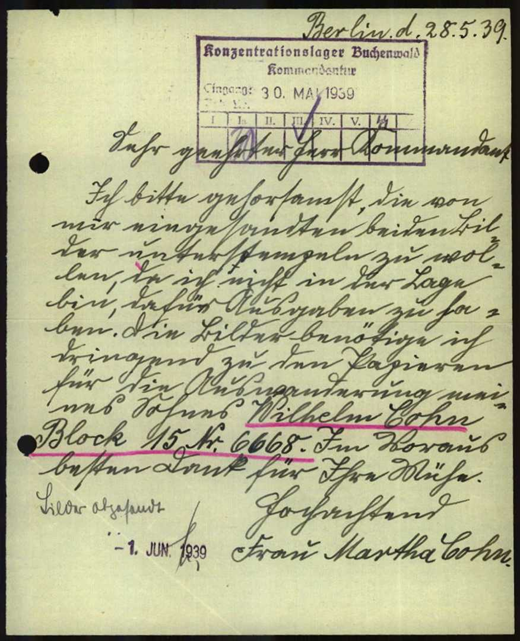 Berlin d. 28.5.39.
Konzentrationslager Buchenwald
Kommandantur
Eingang: 30. MAI 1939
I II. III. IV. V.
Sehr geehrter Herr Kommandant
Ich bitte gehorsamst, die von
mir eingesandten beiden Bil-
der unterstempeln zu wol-
len, da ich nicht in der Lage
bin, dafür Ausgaben zu ha-
ben. Die Bilder benötige ich
dringend zu den Papieren
für die Auswanderung mei-
nes Sohnes Wilhelm Cohn
Block 15 Nr. 6668. Im Voraus
besten Dank für Ihre Mühe.
Bilder abgesandt
Hochachtend
-1. JUN. 1939
Frau Martha Cohn.